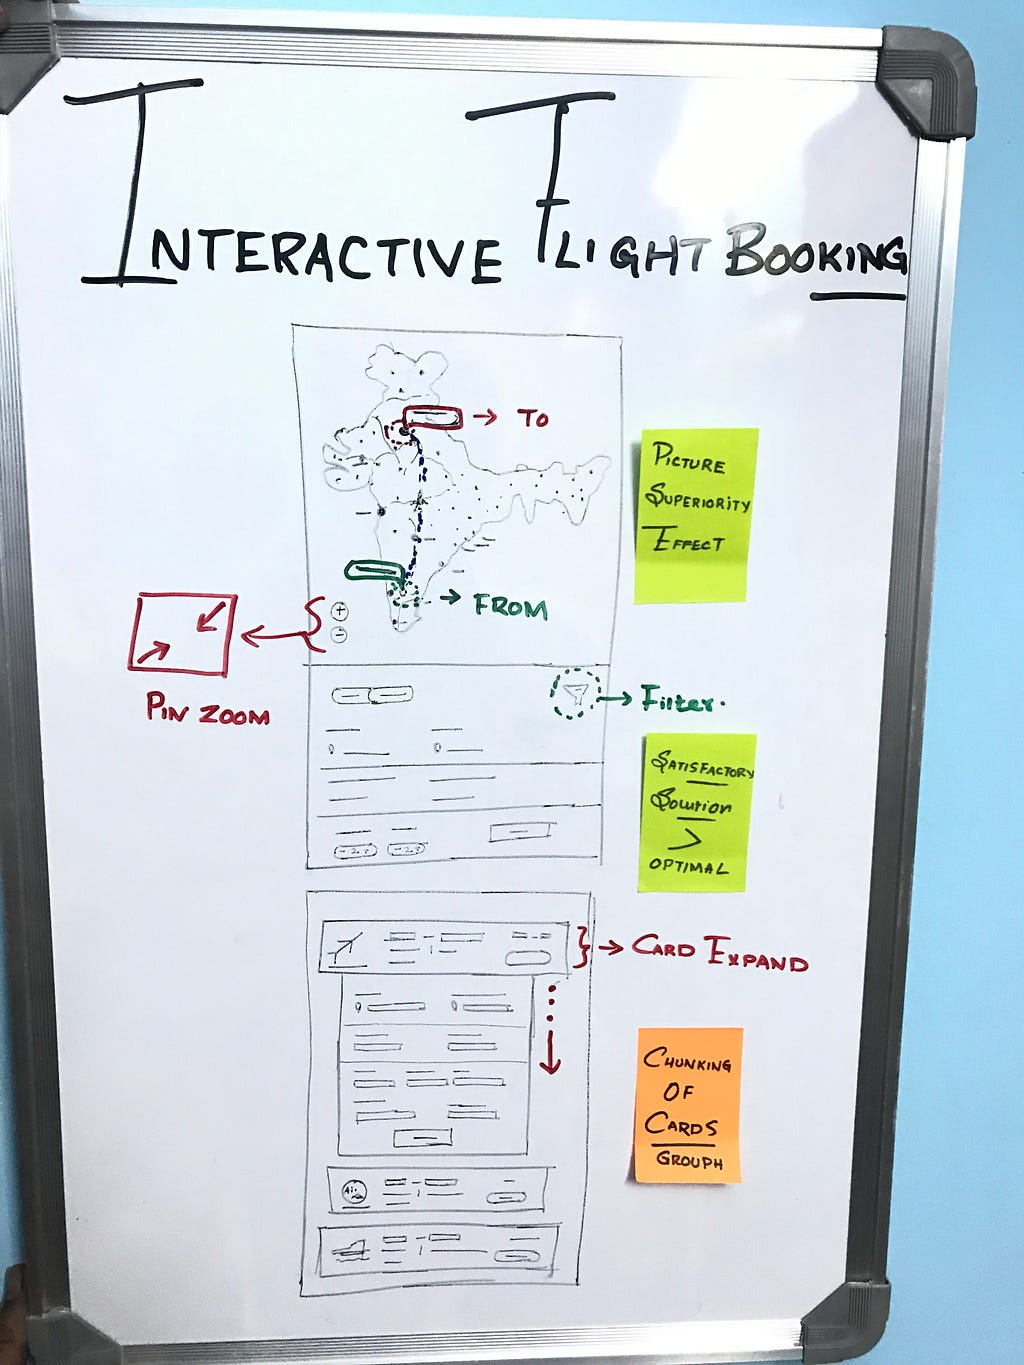 INTERACTIVE FLIGHT BOOKING
→ TO
PICTURE
SUPERIORITY
EFFECT
→ FROM
+
-
PIN ZOOM
→ Filter.
SATISFACTORY
SOLUTION
>
OPTIMAL
→ CARD EXPAND
CHUNKING
OF
CARDS
GROUPH